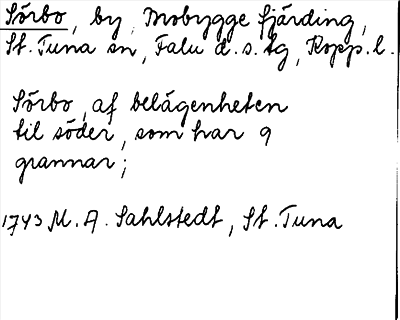 Sörbo, by, Mobygge fjärding,
St. Tuna sn, Falu d.s.tg, Kopp. l.
Sörbo, af belägenheten
til söder, som har 9
grannar;
1743 M. A. Sahlstedt, St. Tuna